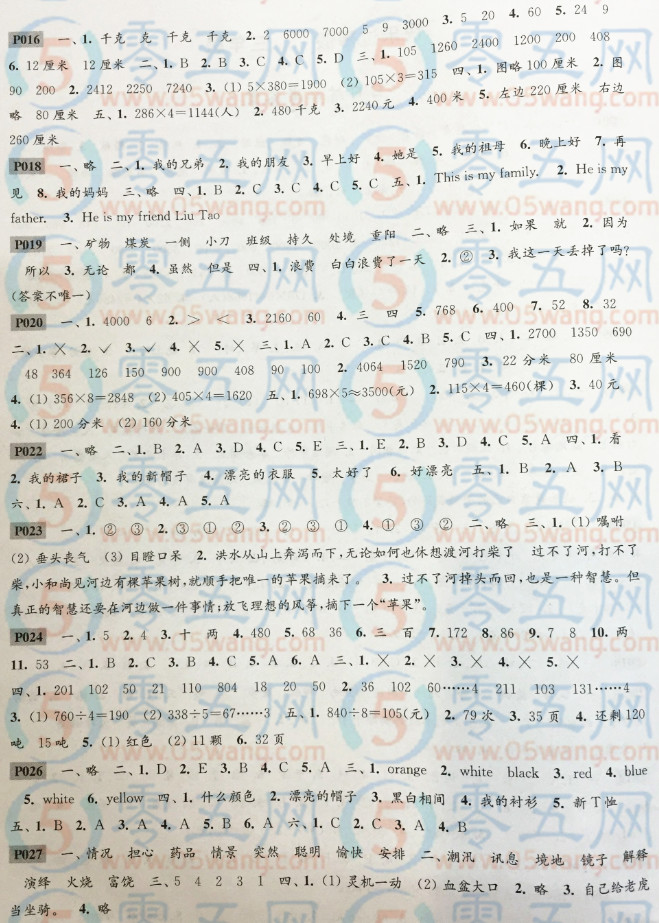 P016 一、1. 千克 克 千克 千克 2. 2 6000 7000 5 9 3000 3. 5 20 4. 60 5. 24 9
6. 12 厘米 12 厘米 二、1. B 2. B 3. C 4. C 5. D 三、1. 105 1260 2400 1200 200 408
90 200 2. 2412 2250 7240 3. (1) 5×380=1900 (2) 105×3=315 四、1. 图略 100 厘米 2. 图
略 80 厘米 五、1. 286×4=1144(人) 2. 480 千克 3. 2240 元 4. 400 米 5. 左边 220 厘米 右边
260 厘米
P018 一、略 二、1. 我的兄弟 2. 我的朋友 3. 早上好 4. 她是 5. 我的祖母 6. 晚上好 7. 再
见 8. 我的妈妈 三、略 四、1. B 2. C 3. C 4. C 5. C 五、1. This is my family. 2. He is my
father. 3. He is my friend Liu Tao
P019 一、矿物 煤炭 一侧 小刀 班级 持久 处境 重阳 二、略 三、1. 如果 就 2. 因为
所以 3. 无论 都 4. 虽然 但是 四、1. 浪费 白白浪费了一天 2. ② 3. 我这一天丢掉了吗?
(答案不唯一)
P020 一、1. 4000 6 2. > < 3. 2160 60 4. 三 四 5. 768 6. 400 7. 52 8. 32
二、1. × 2. ✓ 3. ✓ 4. × 5. × 三、1. A 2. C 3. C 4. B 5. C 四、1. 2700 1350 690
48 364 126 150 900 900 408 90 100 2. 4064 1520 790 3. 22 分米 80 厘米
4. (1) 356×8=2848 (2) 405×4=1620 五、1. 698×5≈3500(元) 2. 115×4=460(棵) 3. 40 元
4. (1) 200 分米 (2) 160 分米
P022 一、略 二、1. B 2. A 3. D 4. C 5. E 三、1. E 2. B 3. D 4. C 5. A 四、1. 看
2. 我的裙子 3. 我的新帽子 4. 漂亮的衣服 5. 太好了 6. 好漂亮 五、1. B 2. A 3. B
六、1. A 2. C 3. A 4. A 5. A
P023 一、1. ② ③ 2. ③ ① ② 3. ② ③ ① 4. ① ③ ② 二、略 三、1. (1) 嘱咐
(2) 垂头丧气 (3) 目瞪口呆 2. 洪水从山上奔泻而下,无论如何也休想渡河打柴了 过不了河,打不了
柴,小和尚见河边有棵苹果树,就顺手把唯一的苹果摘来了。 3. 过不了河掉头而回,也是一种智慧。但
真正的智慧还要在河边做一件事情;放飞理想的风筝,摘下一个“苹果”。
P024 一、1. 5 2. 4 3. 十 两 4. 480 5. 68 36 6. 三 百 7. 172 8. 86 9. 7 8 10. 两
11. 53 二、1. B 2. C 3. B 4. C 5. A 6. A 三、1. × 2. × 3. × 4. × 5. ×
四、1. 201 102 50 21 110 804 18 20 50 2. 36 102 60……4 211 103 131……4
3. (1) 760÷4=190 (2) 338÷5=67……3 五、1. 840÷8=105(元) 2. 79 次 3. 35 页 4. 还剩 120
吨 15 吨 5. (1) 红色 (2) 11 颗 6. 32 页
P026 一、略 二、1. D 2. E 3. B 4. C 5. A 三、1. orange 2. white black 3. red 4. blue
5. white 6. yellow 四、1. 什么颜色 2. 漂亮的帽子 3. 黑白相间 4. 我的衬衫 5. 新 T 恤
五、1. B 2. A 3. A 4. A 5. B 6. A 六、1. C 2. C 3. A 4. B
P027 一、情况 担心 药品 情景 突然 聪明 愉快 安排 二、潮汛 讯息 境地 镜子 解释
演绎 火烧 富饶 三、5 4 2 3 1 四、1. (1) 灵机一动 (2) 血盆大口 2. 略 3. 自己给老虎
当坐骑。 4. 略